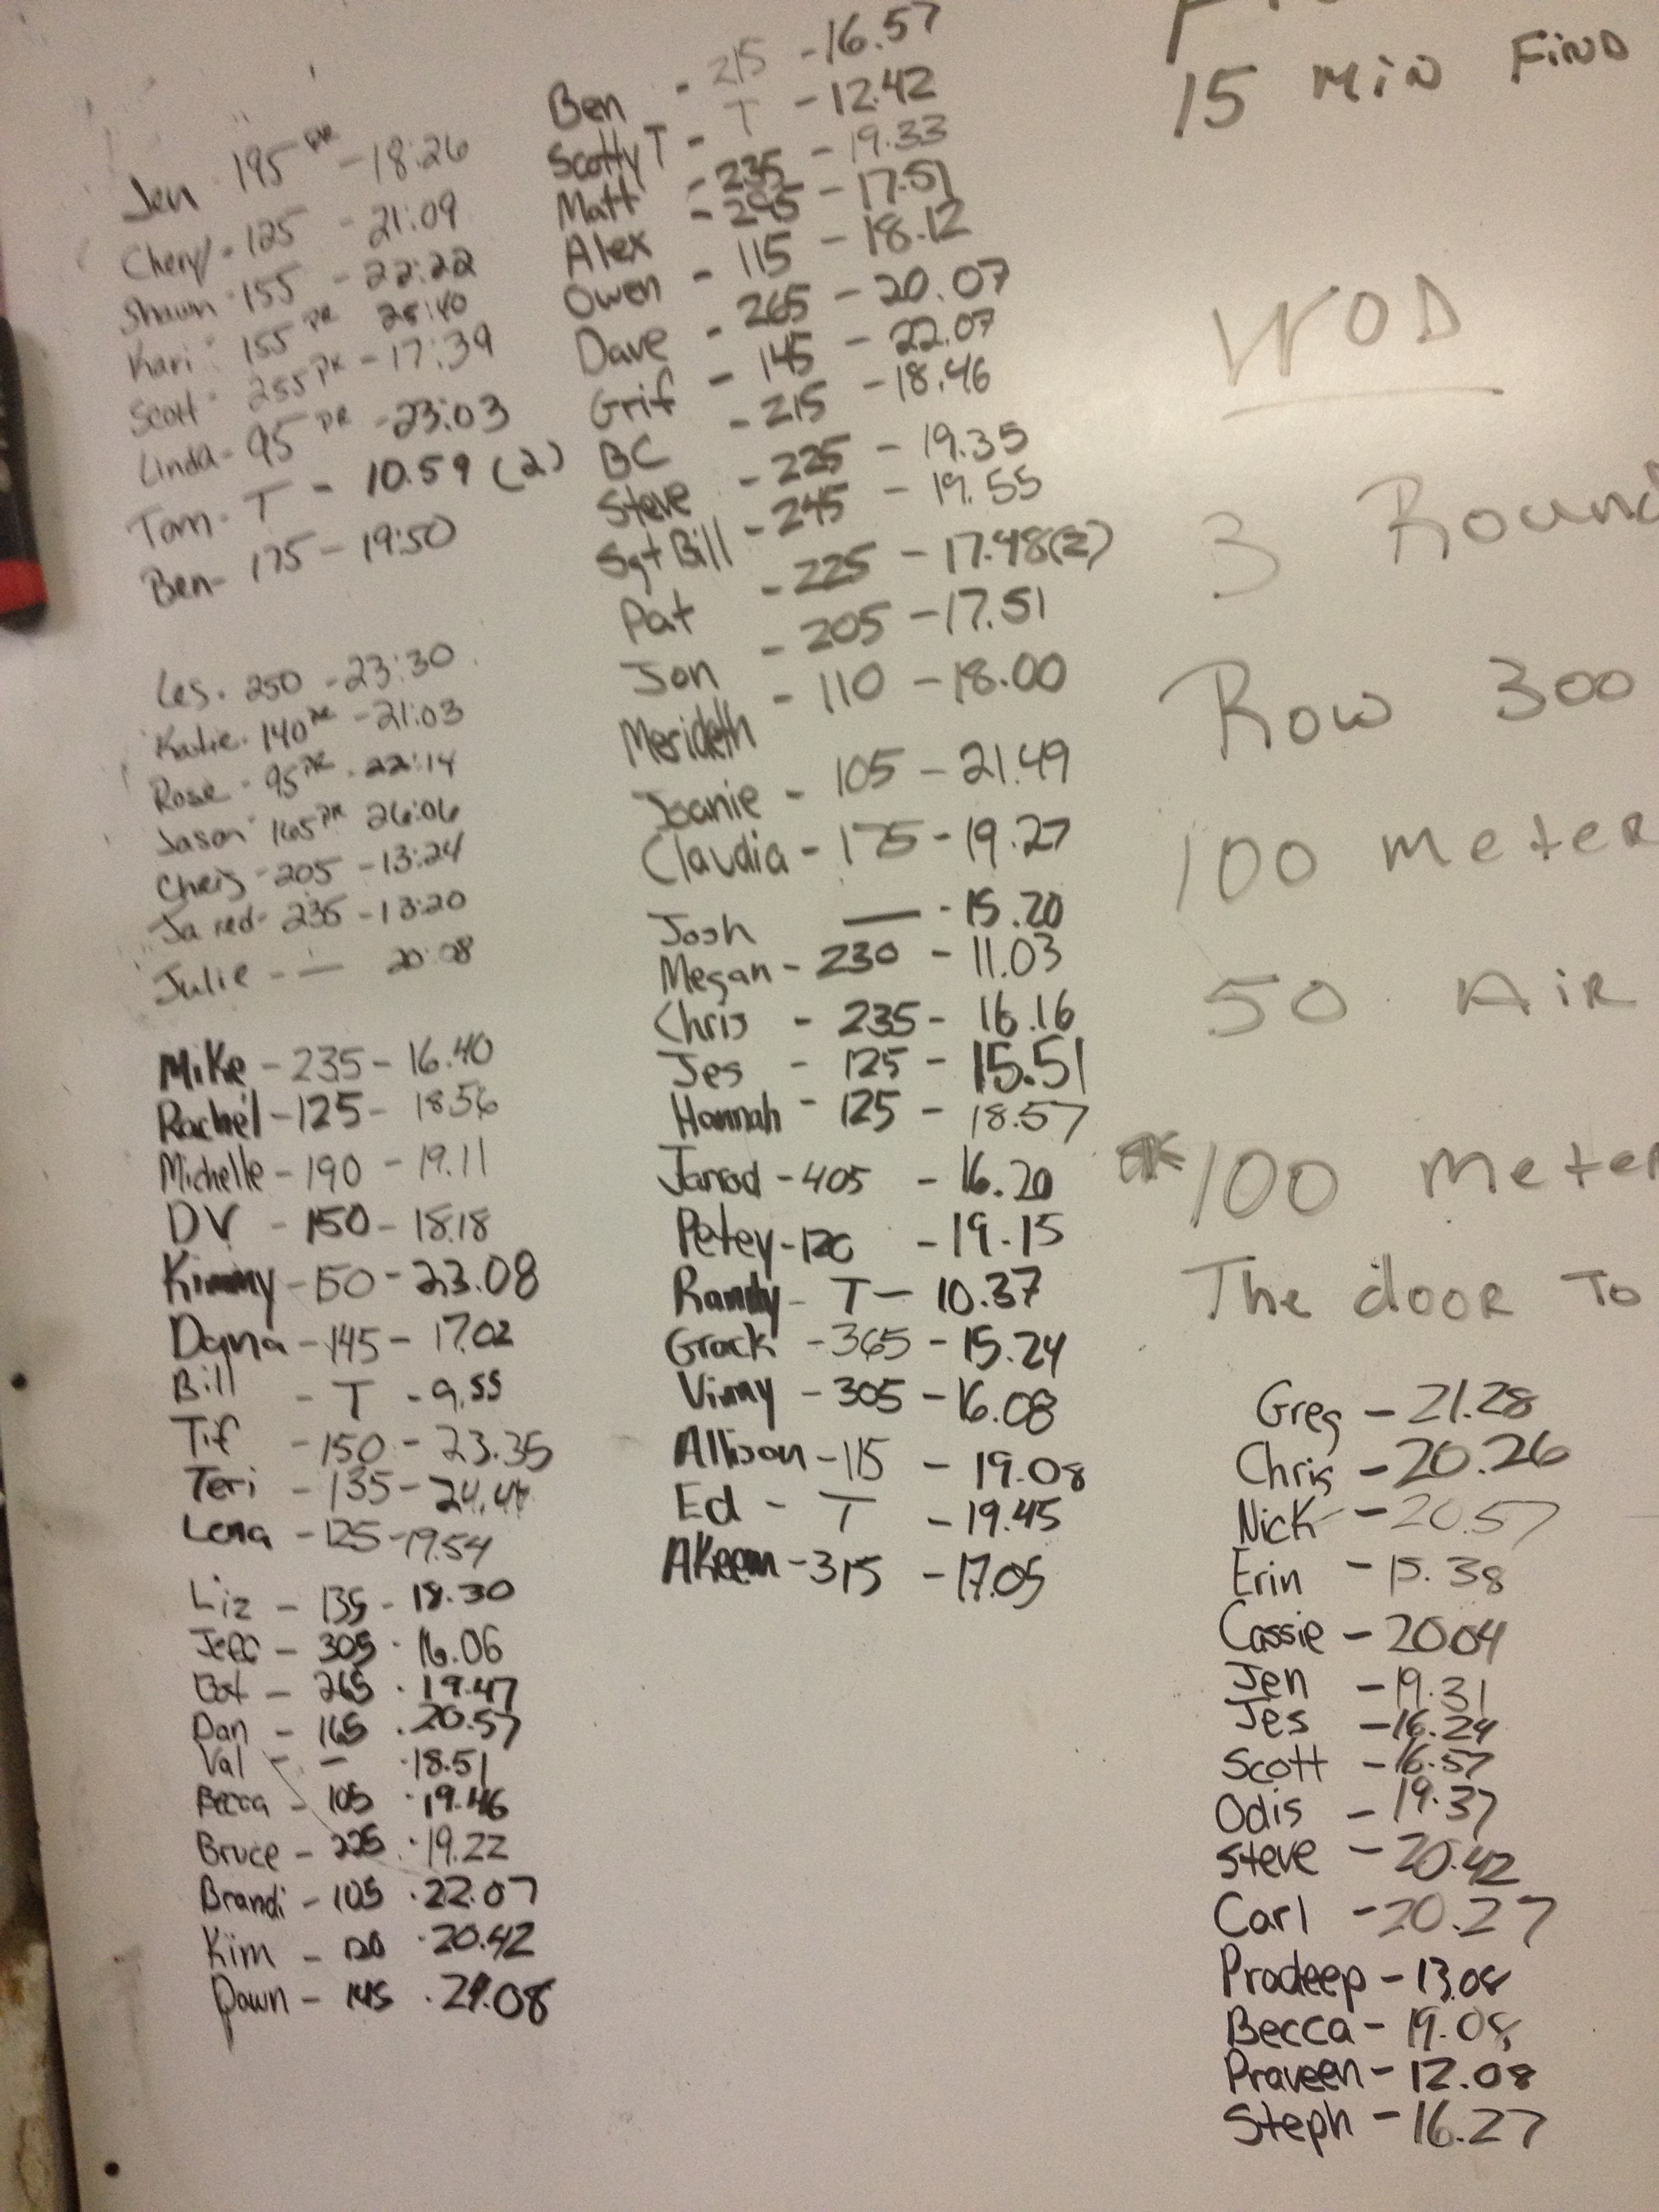 Jen 195 PR - 18:26
Cheryl - 125 - 21:09
Shawn - 155 - 22:22
Kari - 155 PR 25:40
Scott - 255 PR - 17:39
Linda - 95 PR - 23:03
Tom - T - 10.59 (2)
Ben - 175 - 19:50
Les - 250 - 23:30
Katie - 140 PR - 21:03
Rose - 95 PR - 22:14
Jason 165 PR 26:06
Chris - 205 - 13:24
Jared - 235 - 13:20
Julie - — 20:08
Mike - 235 - 16.40
Rachel - 125 - 18.56
Michelle - 190 - 19.11
DV - 150 - 18.18
Kimmy - 150 - 23.08
Dayna - 145 - 17.02
Bill - T - 9.55
Tif - 150 - 23.35
Teri - 135 - 24.44
Lena - 125 - 19.54
Liz - 135 - 18.30
Jeff - 305 - 16.06
265 - 19.47
Dan - 165 - 20.57
Val - — - 18.51
Becca - 105 - 19.46
Bruce - 225 - 19.22
Brandi - 105 - 22.07
Kim - 120 - 20.42
Dawn - 145 - 21.08
Ben - 215 - 16.57
Scotty T - T - 12.42
Matt - 235 - 19.33
Alex - 295 - 17.51
Owen - 115 - 18.12
Dave - 265 - 20.07
Grif - 145 - 22.07
BC - 215 - 18.46
Steve - 225 - 19.35
Sgt Bill - 245 - 19.55
Pat - 225 - 17.48(2)
Jon - 205 - 17.51
Merideth - 110 - 18.00
Joanie - 105 - 21.49
Claudia - 175 - 19.27
Josh — - 15.20
Megan - 230 - 11.03
Chris - 235 - 16.16
Jes - 125 - 15.51
Hannah - 125 - 18.57
Jarod - 405 - 16.20
Petey - 120 - 19.15
Randy - T - 10.37
Grock - 365 - 15.24
Vinny - 305 - 16.08
Allison - 115 - 19.08
Ed - T - 19.45
AKeem - 315 - 17.05
15 Min FIND
WOD
3 Round
Row 300
100 meter
50 AiR
100 meter
The door To
Greg - 21.28
Chris - 20.26
Nick - 20.57
Erin - 15.38
Cassie - 20.04
Jen - 19.31
Jes - 16.24
Scott - 16.57
Odis - 19.37
Steve - 20.42
Carl - 20.27
Pradeep - 13.08
Becca - 19.08
Praveen - 12.08
Steph - 16.27